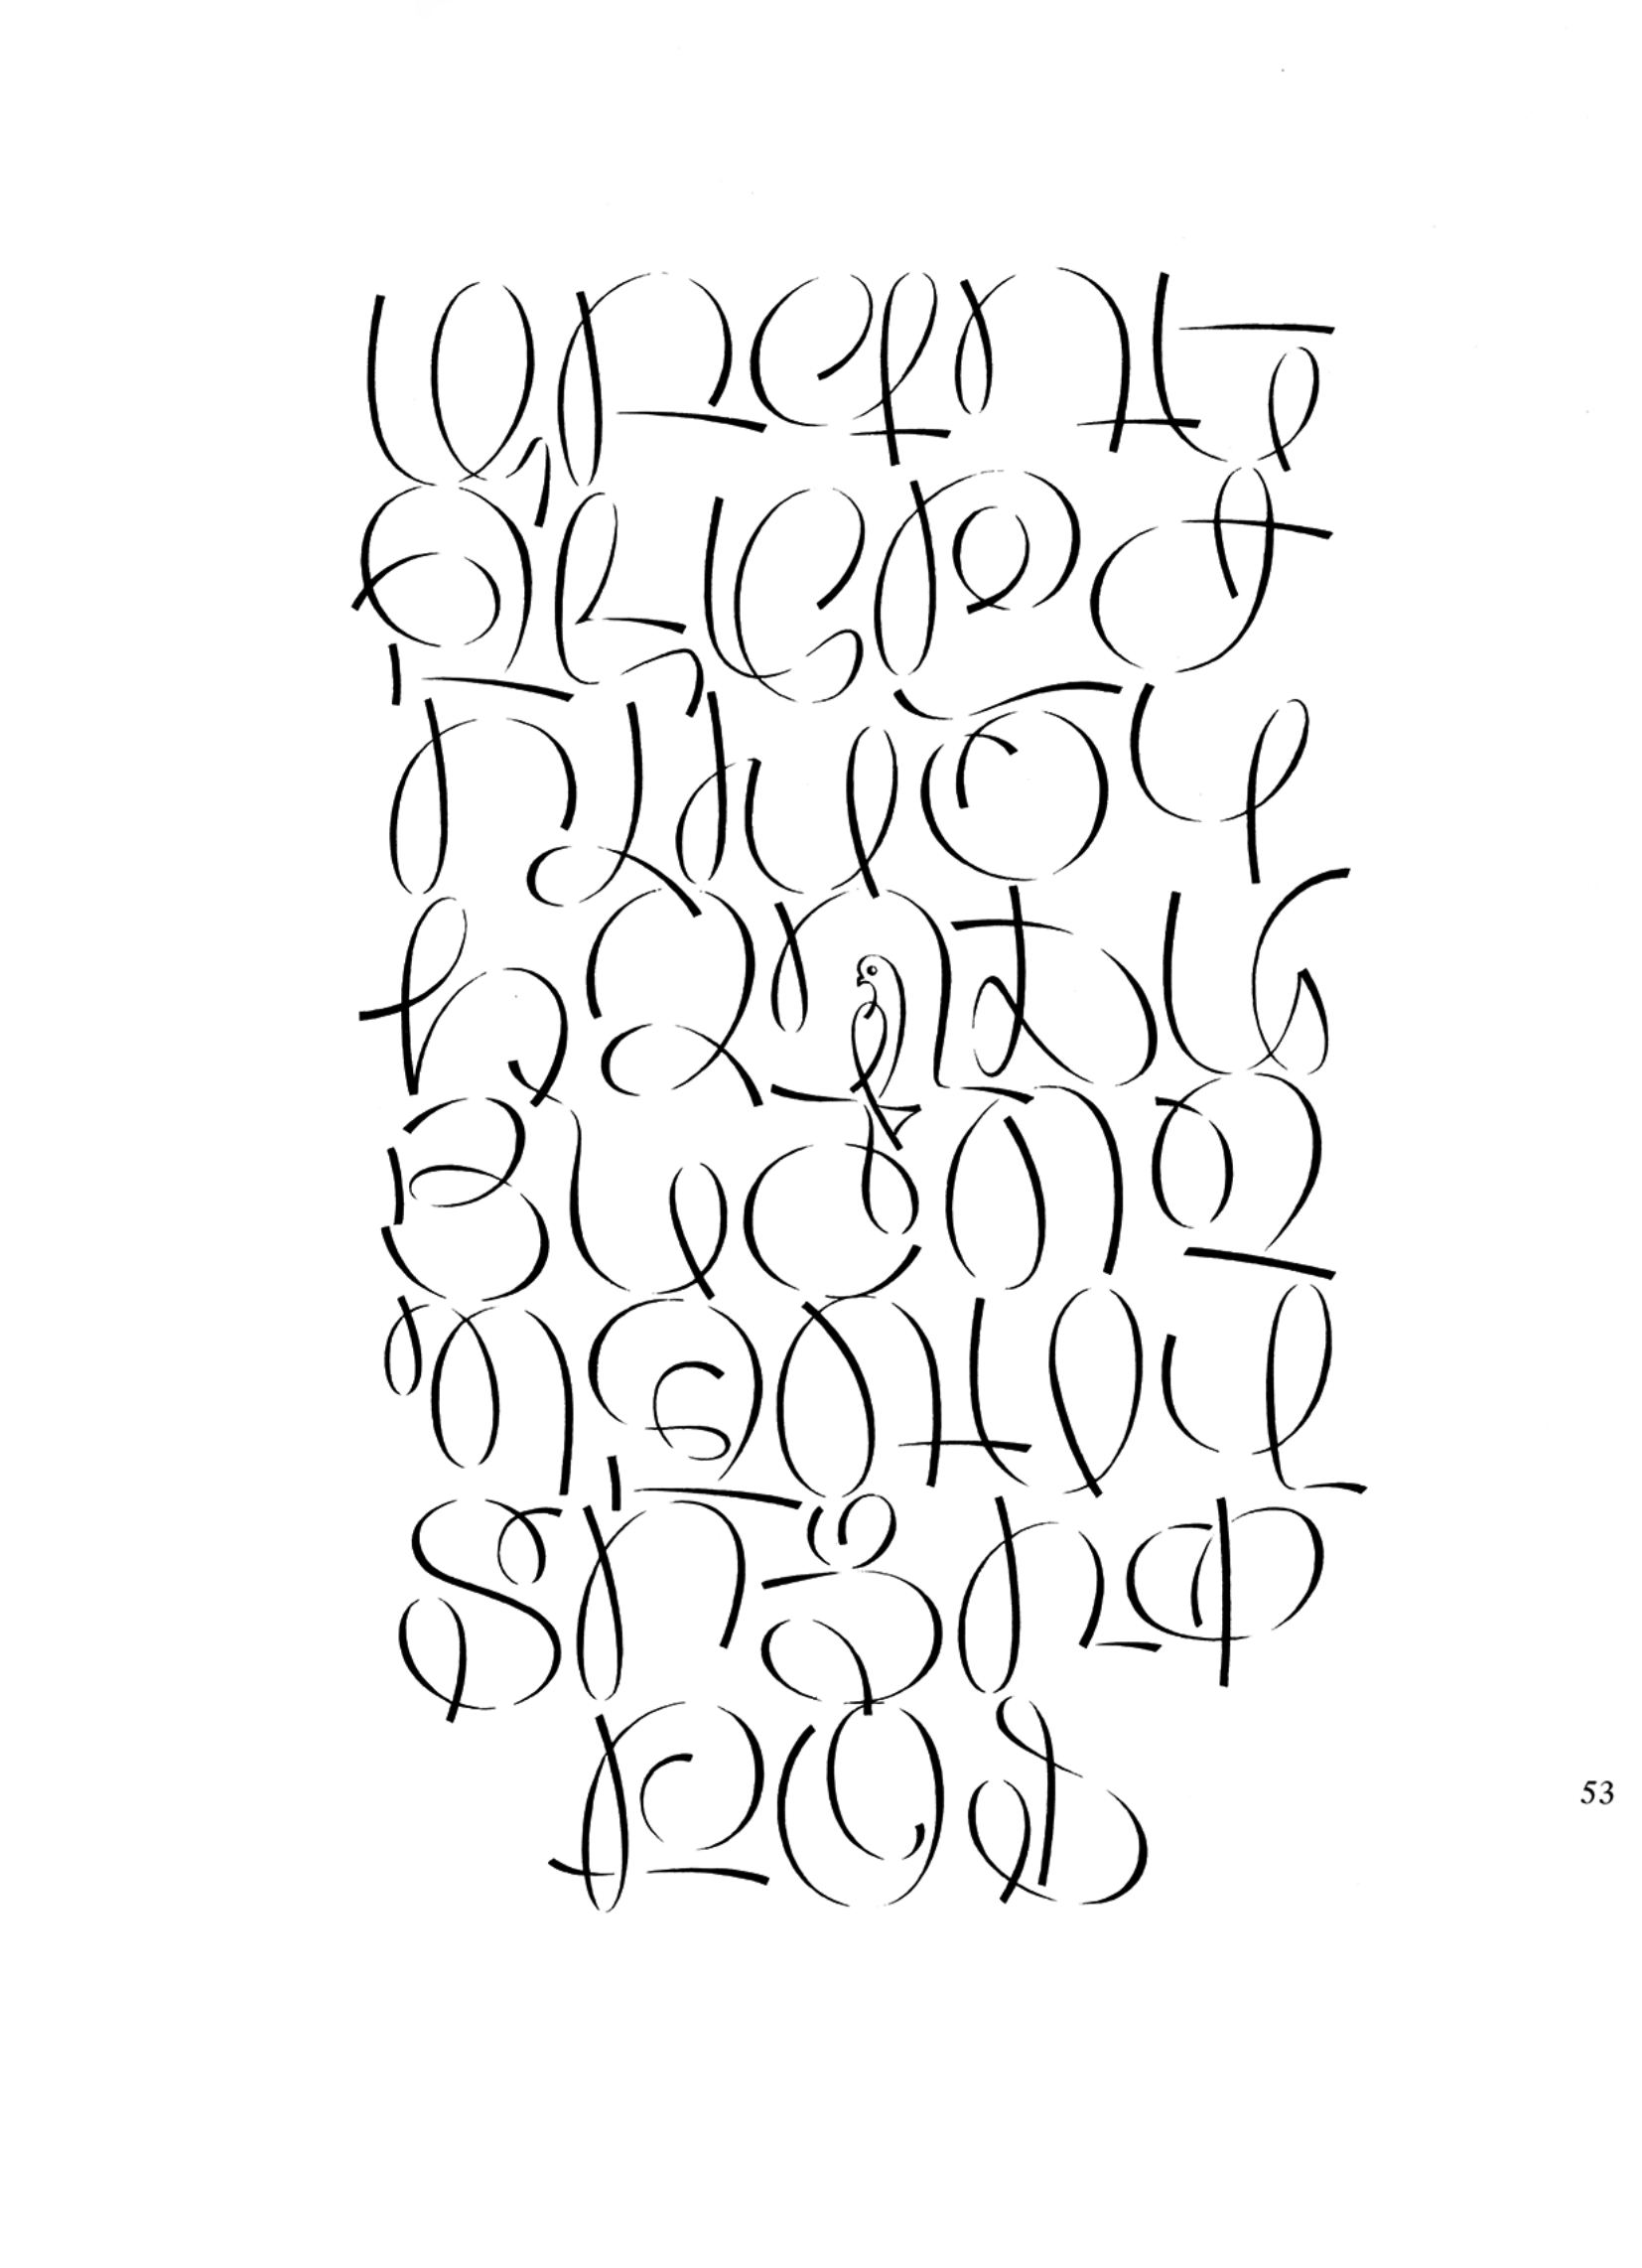 Ա Բ Գ Դ Ե
Զ Է Ը Թ Ժ
Ի Լ Խ Ծ Կ
Հ Ձ Ղ Ճ Մ
Յ Ն Շ Ո Չ
Պ Ջ Ռ Ս Վ
Տ Ր Ց Ւ Փ
Ք Օ Ֆ
53